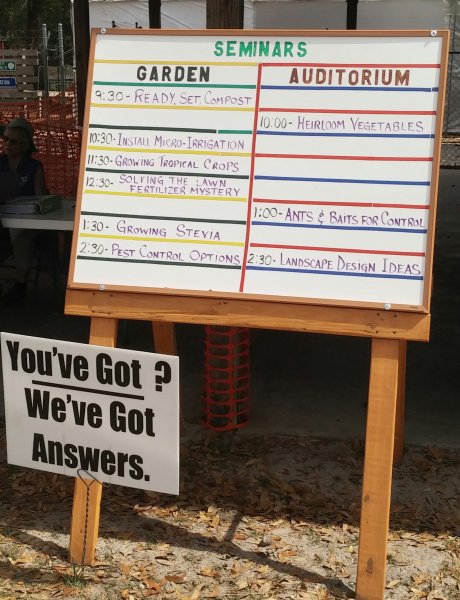 SEMINARS
GARDEN
9:30 - READY, SET, COMPOST
10:30 - INSTALL MICRO-IRRIGATION
11:30 - GROWING TROPICAL CROPS
12:30 - SOLVING THE LAWN
FERTILIZER MYSTERY
1:30 - GROWING STEVIA
2:30 - PEST CONTROL OPTIONS
AUDITORIUM
10:00 - HEIRLOOM VEGETABLES
1:00 - ANTS & BAITS FOR CONTROL
2:30 - LANDSCAPE DESIGN IDEAS
You've Got ?
We've Got
Answers.